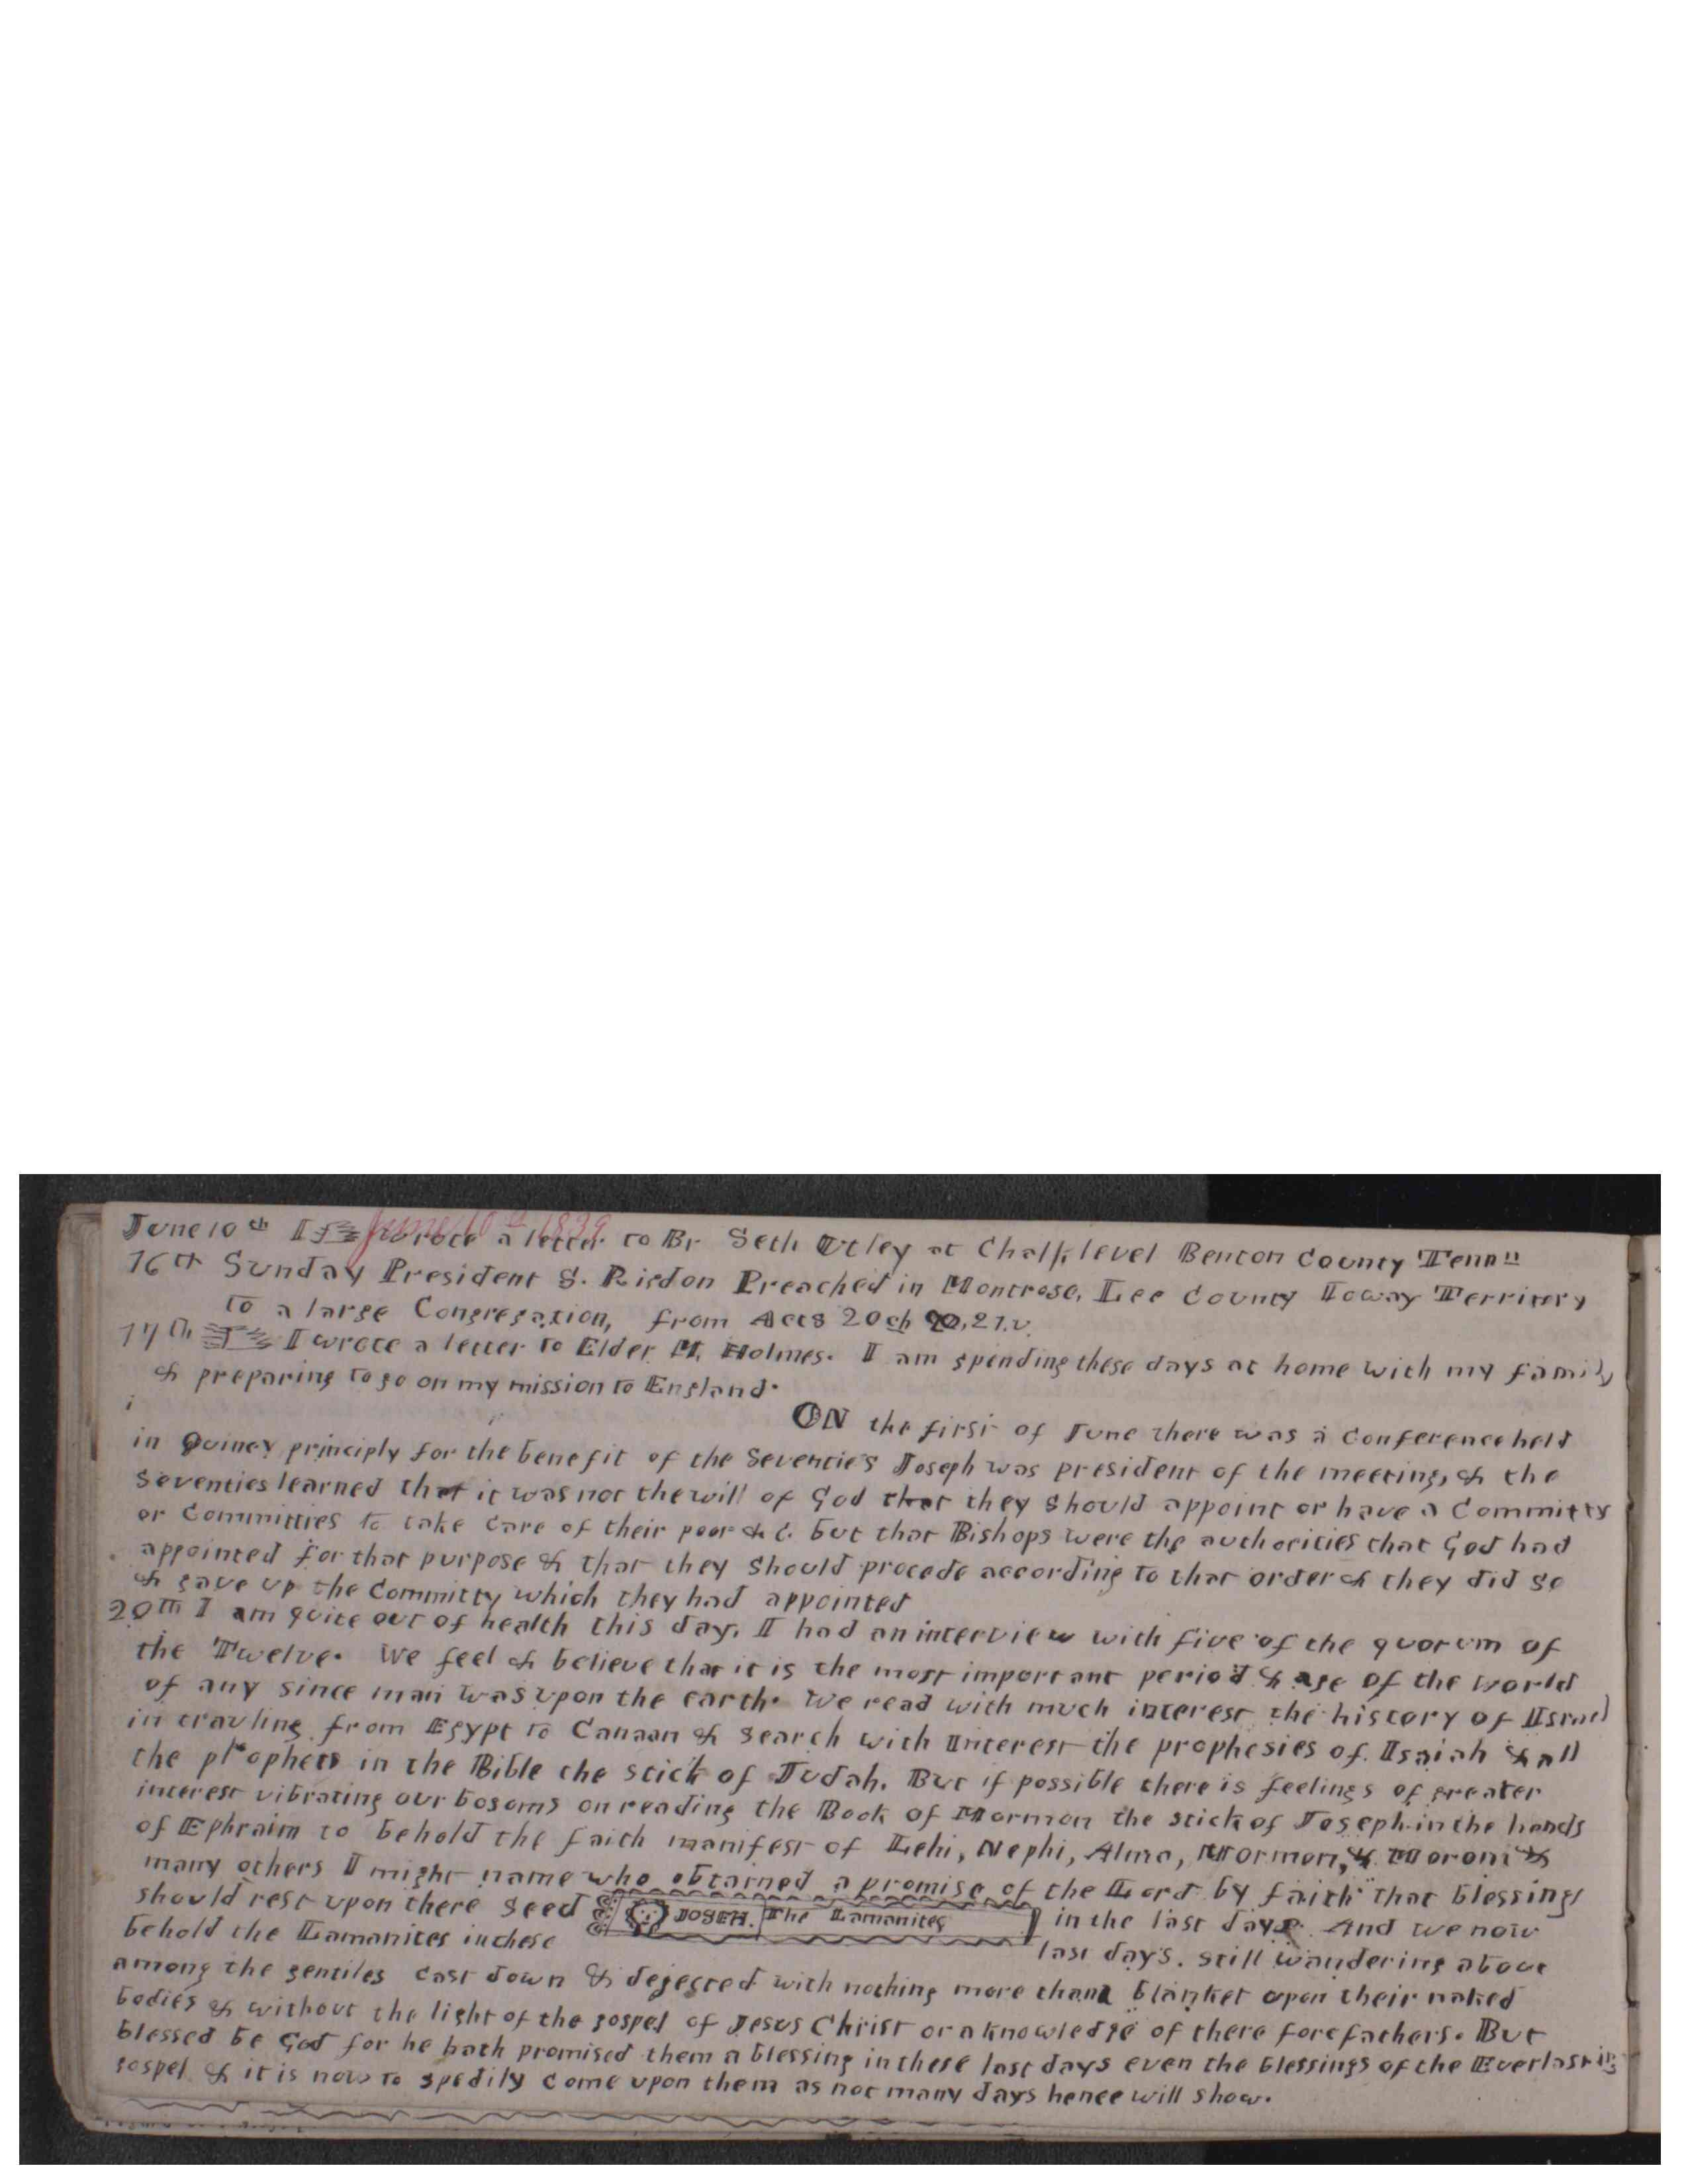 June 10th I wrote a letter to Br Seth Utley at Chalklevel Benton County Tenn"
June 10th 1839
16th Sunday President S. Rigdon Preached in Montrose, Lee County Ioway Territory
to a large Congregation, from Acts 20 ch 20, 21. v.
17th I wrote a letter to Elder M. Holmes. I am spending these days at home with my family
& preparing to go on my mission to England.
i
ON the first of June there was a Conference held
in Quincy principly for the benefit of the Seventies Joseph was president of the meeting, & the
Seventies learned that it was not the will of God that they should appoint or have a Committy
or Committies to take care of their poor & c. but that Bishops were the authorities that God had
appointed for that purpose & that they should procede according to that order & they did so
& gave up the Committy which they had appointed
20th I am quite out of health this day. I had an interview with five of the quorum of
the Twelve. We feel & believe that it is the most important period & age of the world
of any since man was upon the earth. We read with much interest the history of Israel
in travling from Egypt to Canaan & search with interest the prophesies of Isaiah & all
the prophets in the Bible the stick of Judah. But if possible there is feelings of greater
interest vibrating our bosoms on reading the Book of Mormon the stick of Joseph in the hands
of Ephraim to behold the faith manifest of Lehi, Nephi, Alma, Mormon, & Moroni &
many others I might name who obtained a promise of the Lord by faith that blessings
should rest upon there seed JOSEH. The Lamanites in the last days. And we now
behold the Lamanites in these last days. still wandering about
among the gentiles cast down & dejected with nothing more than a blanket upon their naked
bodies & without the light of the gospel of Jesus Christ or a knowledge of there forefathers. But
blessed be God for he hath promised them a blessing in these last days even the blessings of the Everlasting
gospel & it is now to spedily come upon them as not many days hence will show.